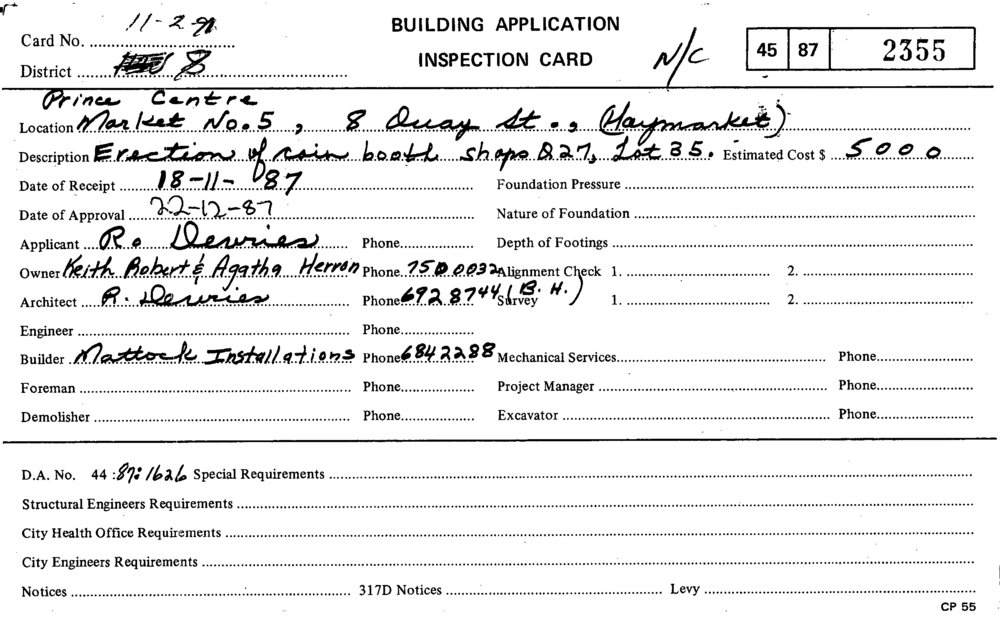 11-2-91
BUILDING APPLICATION
Card No.
INSPECTION CARD
N/C
45 87 2355
District 8
Prince Centre
Location Market No. 5, 8 Quay St., (Haymarket)
Description Erection of coin booth shops D27, Lot 35. Estimated Cost $ 5000
Date of Receipt 18-11-'87 Foundation Pressure
Date of Approval 22-12-87 Nature of Foundation
Applicant R. Devries Phone Depth of Footings
Owner Keith Robert & Agatha Herron Phone 750 0032 Alignment Check 1. 2.
Architect R. Devries Phone 692 8744 (B.H.) Survey 1. 2.
Engineer Phone
Builder Mattock Installations Phone 6842288 Mechanical Services Phone
Foreman Phone Project Manager Phone
Demolisher Phone Excavator Phone
D.A. No. 44 :87: 1626 Special Requirements
Structural Engineers Requirements
City Health Office Requirements
City Engineers Requirements
Notices 317D Notices Levy
CP 55